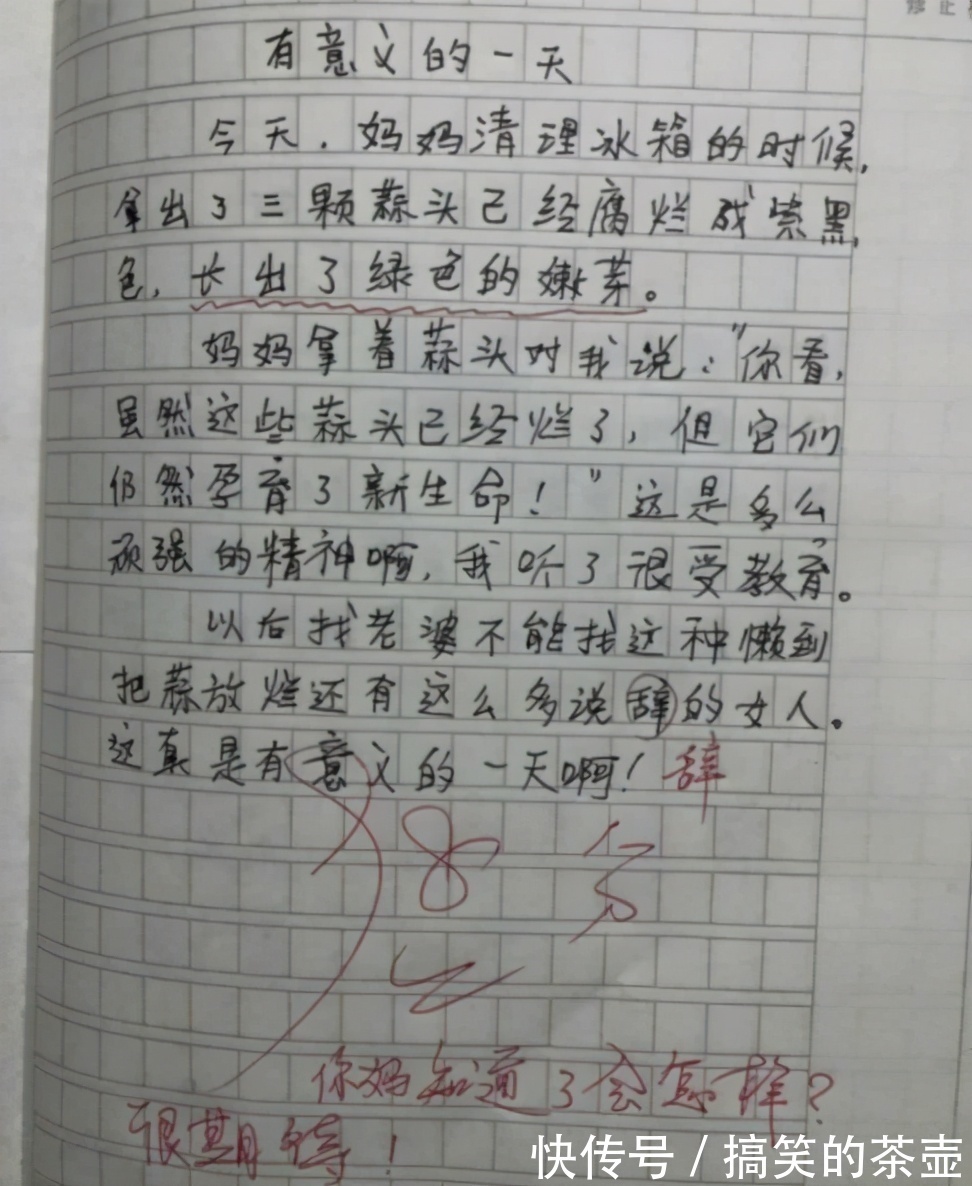 有意义的一天
今天，妈妈清理冰箱的时候，
拿出了三颗蒜头已经腐烂成紫黑
色，长出了绿色的嫩芽。
妈妈拿着蒜头对我说："你看，
虽然这些蒜头已经烂了，但它们
仍然孕育了新生命！"这是多么
顽强的精神啊，我听了很受教育。
以后找老婆不能找这种懒到
把蒜放烂还有这么多说辞的女人。
这真是有意义的一天啊！辞
你妈知道了会怎样？
很期待！
快传号/搞笑的茶壶